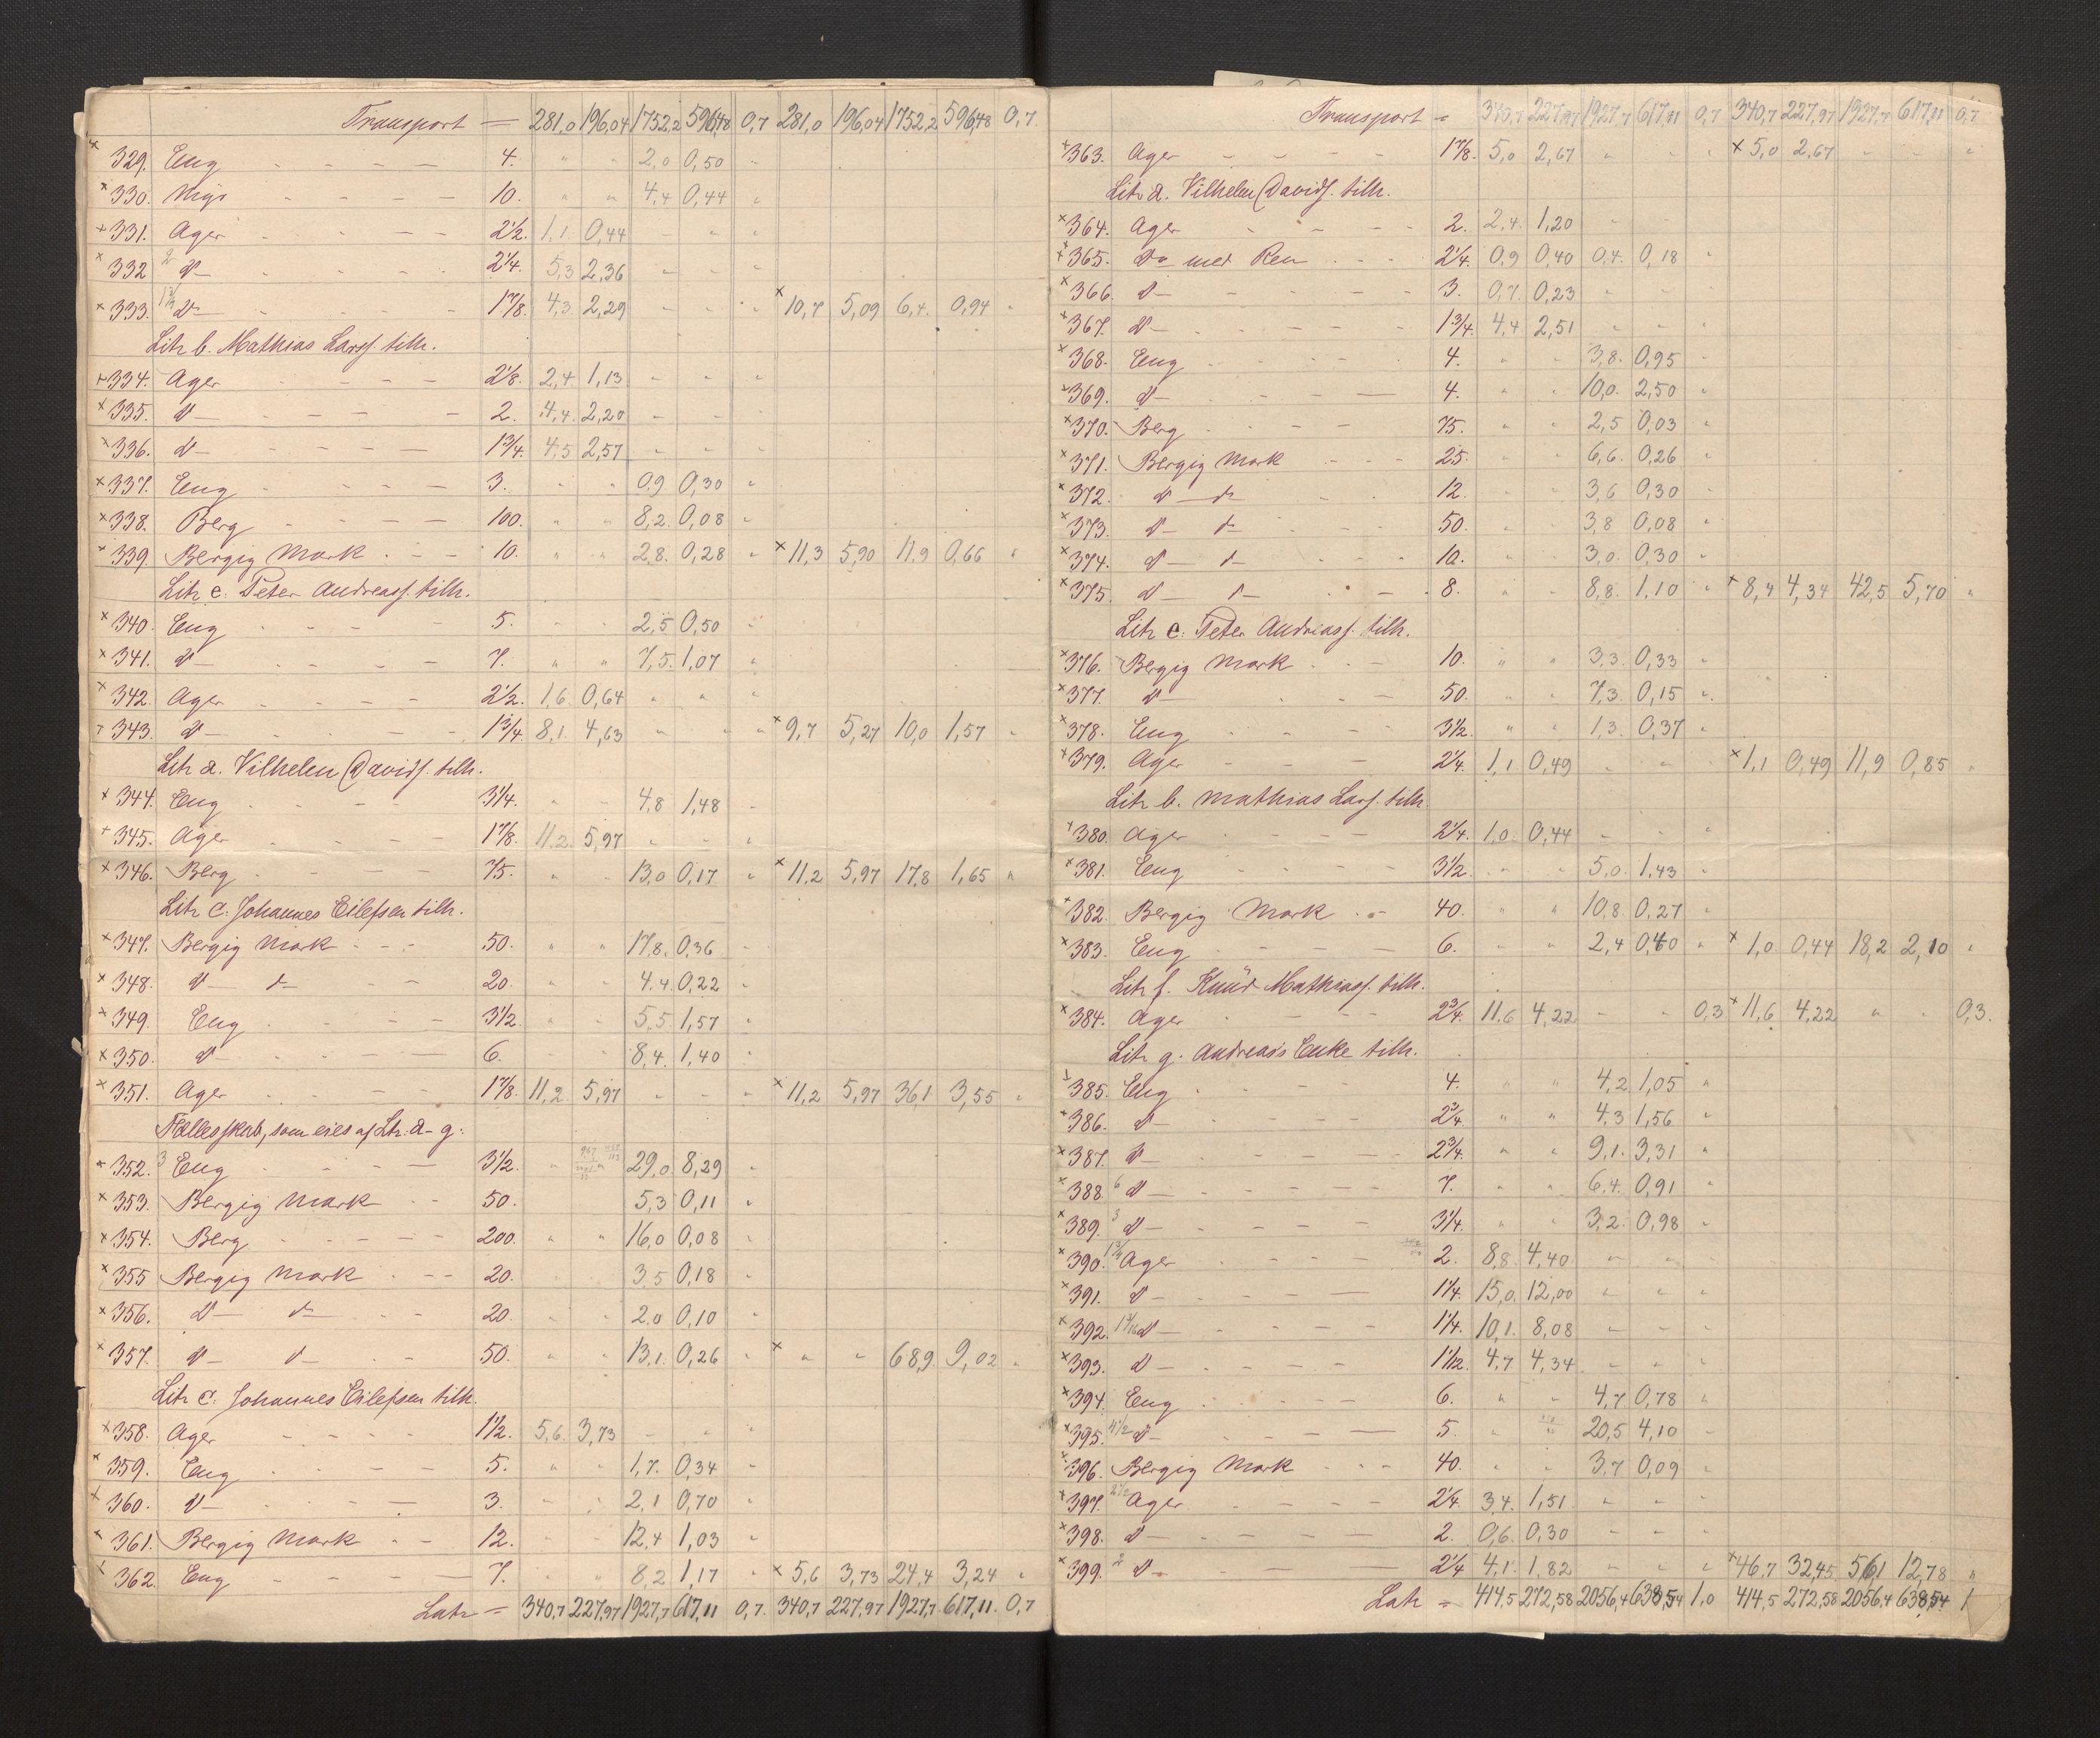 Transport = 281,0 196,04 1752,2 596,48 0,7 281,0 196,04 1752,2 596,48 0,7.
× 329. Eng - - - - 4. " " 2,0 0,50 "
× 330. Myr - - - - 10. " " 4,4 0,44 "
× 331. Ager - - - - 2½. 1,1. 0,44 - " "
× 332 2 d° - - - - 2¼. 5,3 2,36 - - "
× 333. d° - - - - 1⅞. 4,3. 2,29 - - " × 10,7 5,09 6,4. 0,94 "
Litr b. Mathias Larss. tilh.
× 334. Ager - - - - 2⅛. 2,4 1,13 - - "
× 335. d° - - - - 2. 4,4. 2,20 - -
× 336. d° - - - - 1¾. 4,5 2,57 - - -
× 337. Eng - - - - 3. " " 0,9 0,30 "
× 338. Berg - - - - 100. " " 8,2. 0,08 "
× 339. Bergig Mark. - - 10. " " 2,8. 0,28 " × 11,3 5,90 11,9 0,66 "
Litr e. Peter Andreass. tilh.
× 340. Eng - - - - 5. - - 2,5 0,50 "
× 341. d° - - - - 7. " " 7,5. 1,07 "
× 342. Ager - - - - 2½. 1,6. 0,64 " " "
× 343. d° - - - - 1¾. 8,1. 4,63 " " " × 9,7 5,27 10,0 1,57 "
Litr a. Vilhelm Davids. tilh.
× 344. Eng - - - - 3¼. " - 4,8 1,48 -
× 345. Ager - - - - 1⅞. 11,2. 5,97 - - "
× 346. Berg - - - - 75. " " 13,0 0,17 " × 11,2 5,97 17,8 1,65 "
Litr c. Johannes Eilefsen tilh.
× 347. Bergig Mark - - - 50. " " 17,8. 0,36 -
× 348. d° d° - - 20. " - 4,4. 0,22 "
× 349. Eng - - - - 3½. " - 5,5. 1,57 "
× 350. d° - - - - 6. - - 8,4. 1,40 "
× 351. Ager - - - - 1⅞. 11,2. 5,97 - - - × 11,2 5,97 36,1 3,55 "
Fællesskab, som eies af Litr. a-g.
× 352. 3 Eng - - - - 3½. " " 29,0. 8,29 "
× 353. Bergig Mark - - 50. 5,3 0,11 "
× 354. Berg - - - - 200. " " 16,0 0,08 "
× 355 Bergig Mark. - - 20. " " 3,5 0,18 "
× 356. d° d° - - 20. " " 2,0 0,10 "
× 357. d° d° - - 50. " " 13,1. 0,26 " × " " 68,9. 9,02 "
Litr c. Johannes Eilefsen tilh.
× 358. Ager - - - - 1½. 5,6. 3,73 - " "
× 359. Eng - - - - 5. " " 1,7. 0,34 "
× 360. d° - - - - 3. " " 2,1 0,70 "
× 361. Bergig Mark - - 12. - - 12,4 1,03 "
× 362. Eng - - - - 7. " " 8,2. 1,17 " × 5,6 3,73 24,4 3,24 "
Latr = 340,7 227,97 1927,7 617,11 0,7. 340,7 227,97 1927,7. 617,11. 0,7
Transport = 340,7 227,97 1927,7 617,11 0,7 340,7 227,97 1927,7 617,11 0,7
× 363. Ager - - - - 1⅞. 5,0 2,67 " " " × 5,0 2,67 - - "
Litr a. Vilhelm Davids. tilh.
× 364. Ager - - - - 2. 2,4. 1,20 - -
× 365. d° med Ren - - - 2¼. 0,9 0,40 0,4. 0,18 "
× 366. d° - - - - 3. 0,7. 0,23 - -
× 367. d° - - - - 1¾. 4,4 2,51 " " "
× 368. Eng - - - - 4. " " 3,8. 0,95 -
× 369. d° - - - - 4. " " 10,0. 2,50 "
× 370. Berg - - - - 75. " " 2,5 0,03 "
× 371. Bergig Mark - - - 25. " " 6,6. 0,26 "
× 372. d° d° - - 12. " " 3,6 0,30 -
× 373. d° d° - - - 50. " - 3,8 0,08 "
× 374. d° d° - - - 10. " " 3,0. 0,30 "
× 375. d° d° - - - 8. " - 8,8. 1,10 " × 8,4 4,34 42,5 5,70 "
Litr e. Peter Andreass. tilh.
× 376. Bergig Mark. - - 10. " " 3,3. 0,33 "
× 377. d° - - 50. " " 7,3. 0,15 "
× 378. Eng - - - - 3½. " " 1,3. 0,37 "
× 379. Ager - - - - 2¼. 1,1 0,49 - - " × 1,1 0,49 11,9 0,85 "
Litr b. Mathias Larss. tilh.
× 380. Ager - - - - 2¼. 1,0. 0,44 - - "
× 381. Eng - - - - 3½. " " 5,0. 1,43 "
× 382. Bergig Mark. - 40. " " 10,8. 0,27 "
× 383. Eng - - - - 6. " " 2,4 0,40 " × 1,0 0,44 18,2 2,10 "
Litr f. Knud Mathiass. tilh.
× 384. Ager - - - - 2¾. 11,6 4,22 - - 0,3 × 11,6 4,22 " " 0,3.
Litr g. Andreas's Enke tilh.
× 385. Eng - - - - 4. " " 4,2 1,05 "
× 386. d° - - - - 2¾. " " 4,3 1,56 "
× 387. d° - - - - 2¾. " " 9,1. 3,31 "
× 388. 6 d° - - - - 7. " " 6,4. 0,91 "
× 389. 3 d° - - - - 3¼. " " 3,2. 0,98 "
× 390. Ager - - - - 2. 8,8. 4,40 - - -
× 391. d° - - - - 1¼. 15,0. 12,00 " " "
× 392. d° - - - - 1¼. 10,1. 8,08 - - -
× 393. d° - - - - 1 1/12. 4,7 4,34 - " "
× 394. Eng - - - - 6. " " 4,7 0,78 "
× 395. 4½ d° - - - - 5. " 20,5 4,10 -
× 396. Bergig Mark - - - 40. " " 3,7 0,09 "
× 397. Ager - - - - 2¼. 3,4. 1,51 " " "
× 398. d° - - - - 2. 0,6. 0,30 - - -
× 399. 2 d° - - - - 2¼ 4,1. 1,82 - " " × 46,7 32,45 56,1 12,78 "
Latr = 414,5 272,58 2056,4 638,54 1,0 414,5 272,58 2056,4 638,54 1